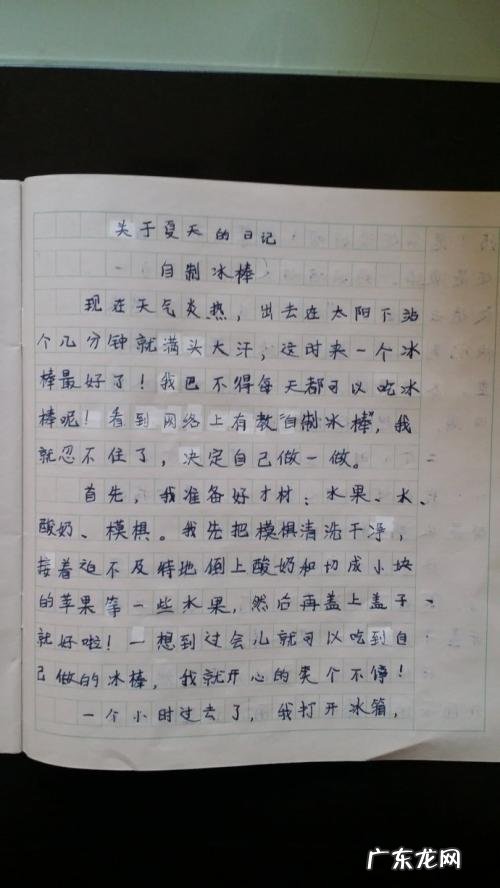 关于夏天的日记
自制冰棒
现在天气炎热，出去在太阳下站
个几分钟就满头大汗，这时来一个冰
棒最好了！我巴不得每天都可以吃冰
棒呢！看到网络上有教“自制冰棒”，我
就忍不住了，决定自己做一做。
首先，我准备好才材：水果、水、
酸奶、模俱。我先把模俱清洗干净，
接着迫不及待地倒上酸奶和切成小块
的苹果等一些水果，然后再盖上盖子
就好啦！一想到过会儿就可以吃到自
己做的冰棒，我就开心的笑个不停！
一个小时过去了，我打开冰箱，
广东龙网